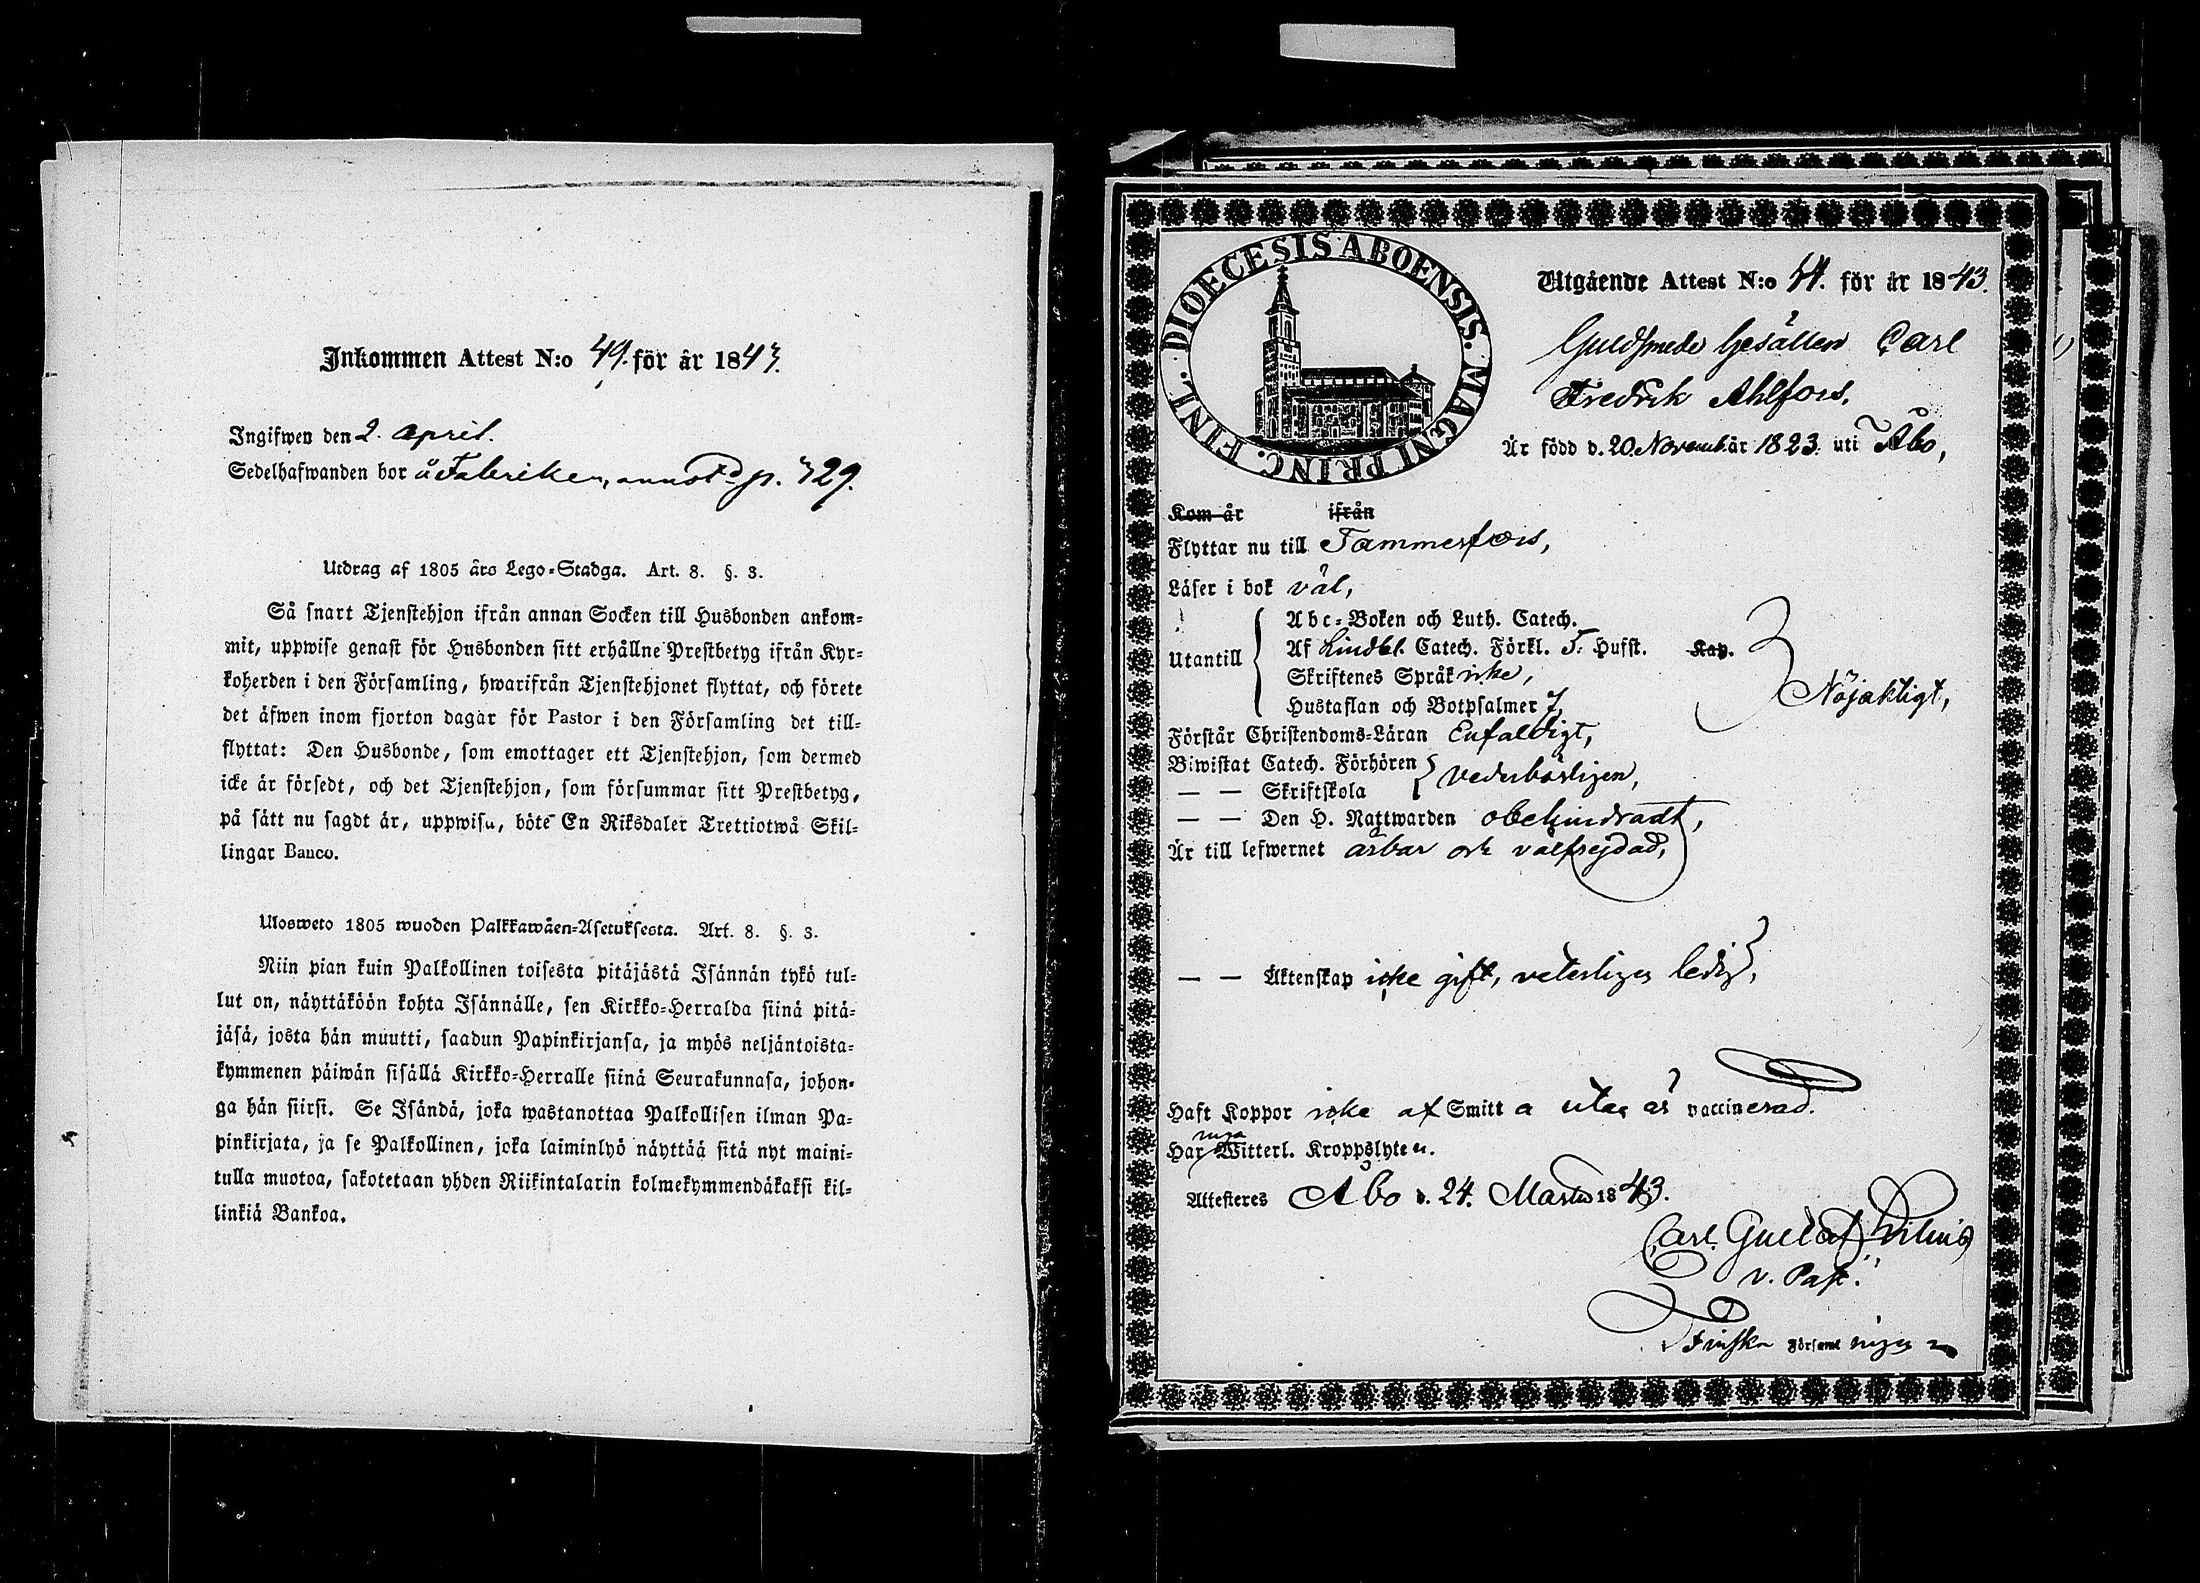 Inkommen Attest N:o 49. för år 1843.
Ingifwen den 2. April.
Sedelhafwanden bor å Fabriken, annot. p. 329.
Utdrag af 1805 års Lego-Stadga. Art. 8. §. 3.
Så snart Tjenstehjon ifrån annan Socken till Husbonden ankom-
mit, uppwise genast för Husbonden sitt erhållne Prestbetyg ifrån Kyr-
koherden i den Församling, hwarifrån Tjenstehjonet flyttat, och förete
det äfwen inom fjorton dagar för Pastor i den Församling det till-
flyttat: Den Husbonde, som emottager ett Tjenstehjon, som dermed
icke är försedt, och det Tjenstehjon, som försummar sitt Prestbetyg,
på sätt nu sagdt är, uppwisa, böte En Riksdaler Trettiotwå Skil-
lingar Banco.
Ulosweto 1805 wuoden Palkkawäen-Asetuksesta. Art. 8. §. 3.
Niin pian kuin Palkollinen toisesta pitäjästä Isännän tykö tul-
lut on, näyttäköön kohta Isännälle, sen Kirkko-Herralda siinä pitä-
jäsä, josta hän muutti, saadun Papinkirjansa, ja myös neljäntoista-
kymmenen päiwän sisällä Kirkko-Herralle siinä Seurakunnasa, johon-
ga hän siirsi. Se Isändä, joka wastanottaa Palkollisen ilman Pa-
pinkirjata, ja se Palkollinen, joka laiminlyö näyttää sitä nyt maini-
tulla muotoa, sakotetaan yhden Riikintalarin kolmekymmendäkaksi kil-
linkiä Bankoa.
DIOECESIS ABOENSIS. MAGNI PRINC. FINL.
Utgående Attest N:o 54. för år 1843.
Guldsmeds Gesällen Carl
Fredrik Ahlfors,
Är född d. 20 Novemb. år 1823. uti Åbo,
Kom år ifrån
Flyttar nu till Tammerfors,
Läser i bok väl,
Utantill
Abc-Boken och Luth. Catech.
Af Lindbl. Catech. Förkl. 5. Hufst. Kap.
Skriftenes Språk icke,
Hustaflan och Botpsalmer 7,
Nöjaktigt,
Förstår Christendoms-Läran Enfaldigt,
Biwistat Catech. Förhören
— — Skriftskola
vederbörligen,
— — Den H. Nattwarden obehindradt,
Är till lefwernet ärbar och välfrejdad,
— — Äktenskap icke gift, veterligen ledig,
Haft Koppor icke af Smitta utan är vaccinerad.
Har inga Witterl. Kroppslyten.
Attesteres Åbo d. 24. Martii 1843.
Carl Gustaf
v. Past.
Finska Församlingen